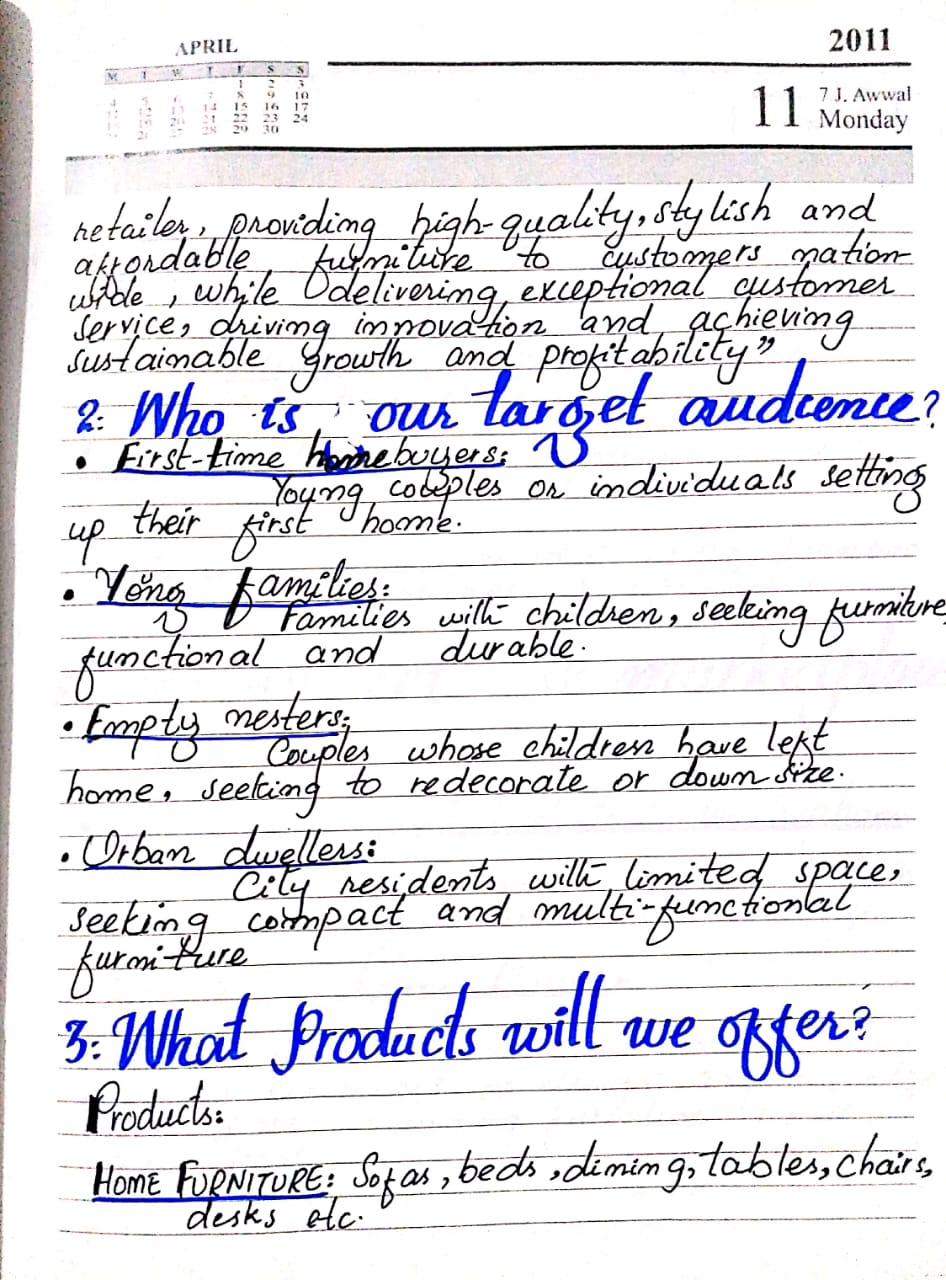 APRIL
2011
M T W T F S S
1 2 3
4 5 6 7 8 9 10
11 12 13 14 15 16 17
18 19 20 21 22 23 24
25 26 27 28 29 30
11 7 J. Awwal
Monday
retailer, providing high-quality, stylish and
affordable furniture to customers nation-
wide, while delivering exceptional customer
service, driving innovation and achieving
sustainable growth and profitability"
2: Who is our target audience?
• First-time homebuyers:
Young couples or individuals setting
up their first home.
• Young families:
Families with children, seeking furniture,
functional and durable.
• Empty nesters:
Couples whose children have left
home, seeking to redecorate or down size.
• Urban dwellers:
City residents with limited space,
seeking compact and multi-functional
furniture
3: What Products will we offer?
Products:
HOME FURNITURE: Sofas, beds, dining, tables, chairs,
desks etc.